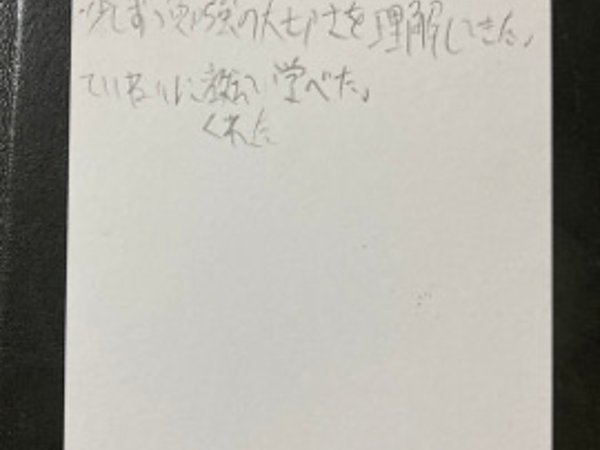 少しずつ勉強の大切さを理解してきた。
ていねいに教えて学べた。
くれた